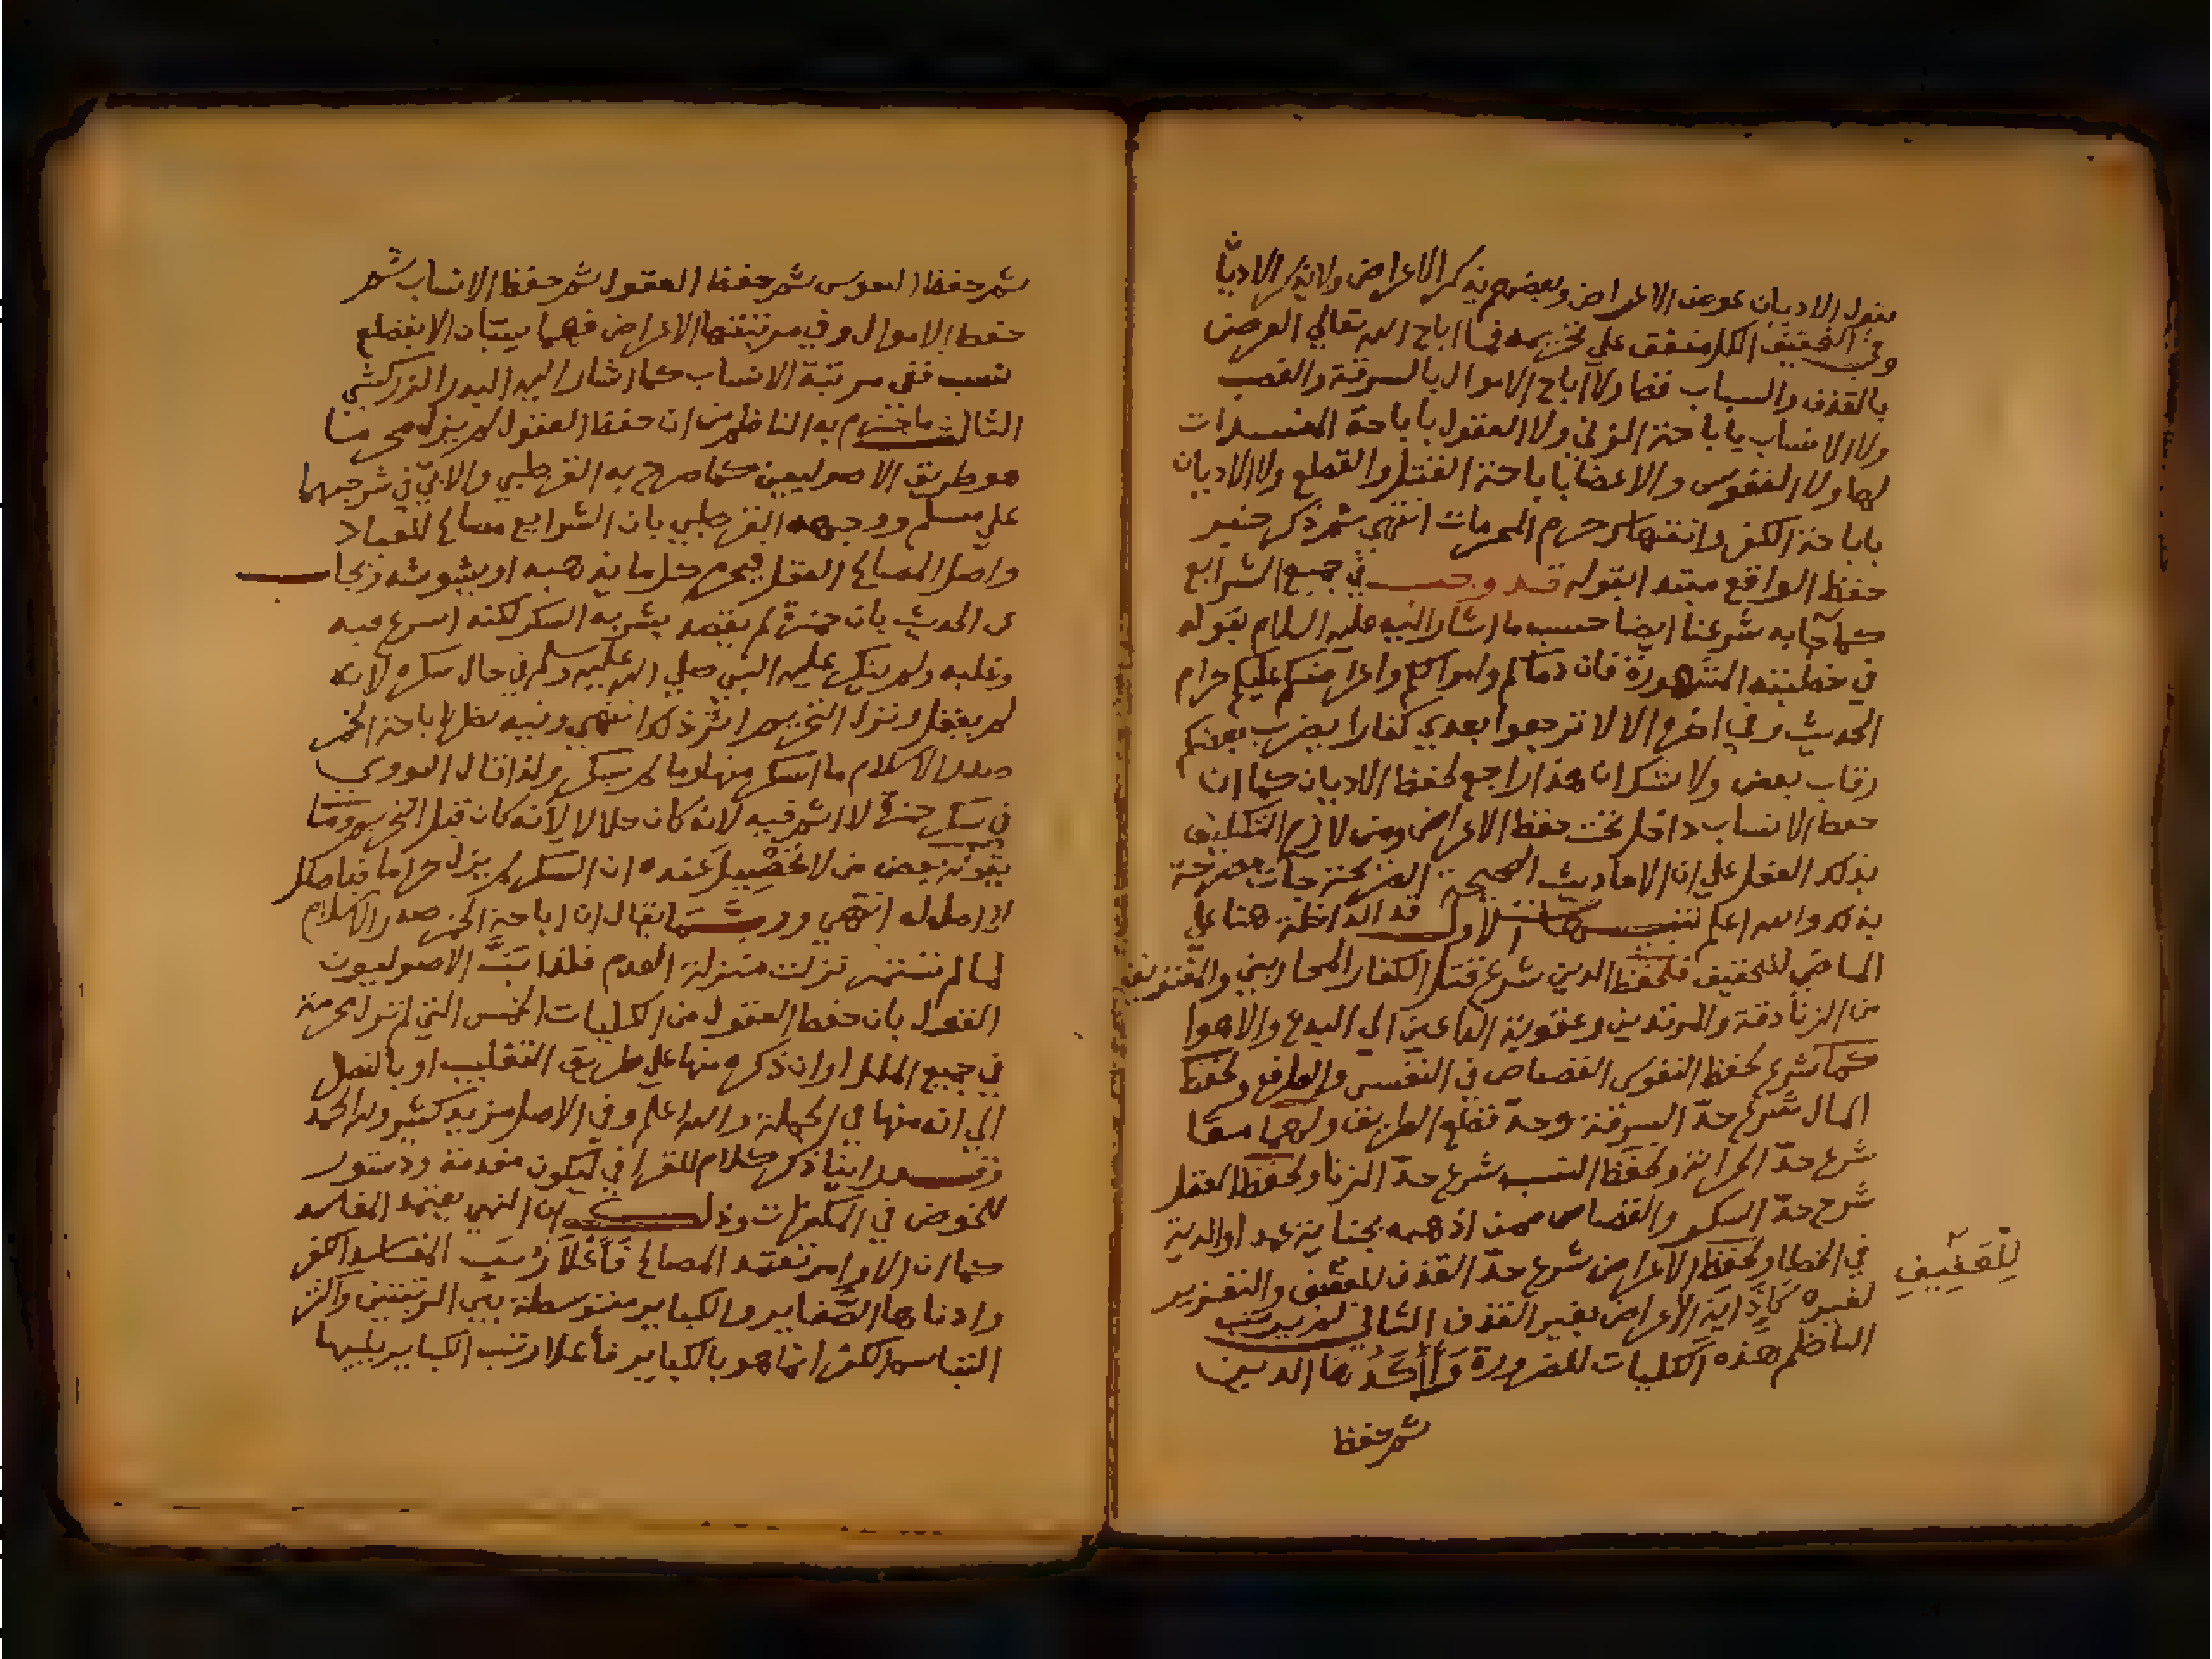 يقول الاديان عوض الاعراض وبعضهم يذكر الاعراض ولا يذكر الاديان
وفي التحقيق الكل متفق على تحريمه فما اباح الله تعالى العرض
بالقذف والسباب قط ولا اباح الاموال بالسرقة والغصب
ولا الانساب باباحة الزنى ولا العقول باباحة المفسدات
لها ولا النفوس والاعضا باباحة القتل والقطع ولا الاديان
باباحة الكفر وانتهاك حرم المحرمات انتهي ثم ذكر خبر
حفظ الواقع مبتدا بقوله قد وجب في جميع الشرايع
كما جا به شرعنا ايضا حسب ما اشار اليه عليه السلام بقوله
في خطبته المشهورة فان دماكم واموالكم واعراضكم عليكم حرام
الحديث وفي اخره الا لا ترجعوا بعدي كفارا يضرب بعضكم
رقاب بعض ولا شك ان هذا راجع لحفظ الاديان كما ان
حفظ الانساب داخل تحت حفظ الاعراض ومن لازم التكليف
بذلك العقل علي ان الاحاديث الصحيحة جات مصرحة
بذلك والله اعلم تنبيهات الاول قد الداخلة هنا علي
الماضي للتحقيق فلحفظ الدين شرع قتل الكفار المحاربين
من الزنادقة والمرتدين وعقوبة الداعين الي البدع والاهوا
كما شرع لحفظ النفوس القصاص في النفس والطرف ولحفظ
المال شرع حدّ السرقة وحدّ قطع الطريق ولهما معا
شرع حدّ الحرابة ولحفظ النسب شرع حدّ الزنا ولحفظ العقل
شرع حدّ السكر والقصاص ممن اذهبه بجناية عمد او الدية
في الخطا ولحفظ الاعراض شرع حدّ القذف للعفيف والتعزير
لِلْعَفِيفِ
لغيره كاذاية الاعراض بغير القذف الثاني لم يرتب
الناظم هذه الكليات للضرورة وَأَكَدُهَا الدين
ثم حفظ
ثم حفظ النفوس ثم حفظ العقول ثم حفظ الانساب ثم
حفظ الاموال وفي مرتبتها الاعراض فيهما
نسب ففي مرتبة الانساب كما اشار اليه البدر الزركشي
الثالث ما جزم به الناظم من ان حفظ العقول لم يزل محرما
هو طريق الاصوليين كما صرح به القرطبي والابي في شرحيهما
علي مسلم ووجهه القرطبي بان الشرايع مصالح للعباد
واصل المصالح العقل فيحرم كل ما يذهبه او يشوشه واجاب
عن الحديث بان حمزة لم يقصد بشربه السكر لكنه اسرع فيه
وغلبه ولم ينكر عليه النبي صلي الله عليه وسلم في حال سكره لانه
لم يعقل ونزل التحريم اثر ذلك انتهي وفيه نظر اباحة الخمر
صدر الاسلام ما اسكر منها وما لم يسكر ولذا قال النووي
في سكر حمزة لا اثم فيه لانه كان حلالا لانه كان قبل التحريم وما
يقوله بعض من لا تحصيل عنده ان السكر لم يزل حراما فباطل
لا اصل له انتهي وربما يقال ان اباحة الخمر صدر الاسلام
لما لم تستمر نزلت منزلة العدم فلذا بتَّ الاصوليون
القول بان حفظ العقول من الكليات الخمس التي لم تزل محرمة
في جميع الملل او ان ذكره منها علي طريق التغليب او بالنظر
الي انه منها في الجملة والله اعلم وفي الاصل مزيد كثير وله الحمد
وقد راينا ذكر كلام للقرافي ليكون مقدمة ودستور
للخوض في المكفرات وذلك ان النهي يعتمد المفاسد
كما ان الاوامر تعتمد المصالح فَأَعْلَا رُتَب المفاسد الكفر
وادناها الصَّغاير والكباير متوسطة بين الرتبتين واكثر
التباس الكفر انما هو بالكباير فأعلا رتب الكباير يليها